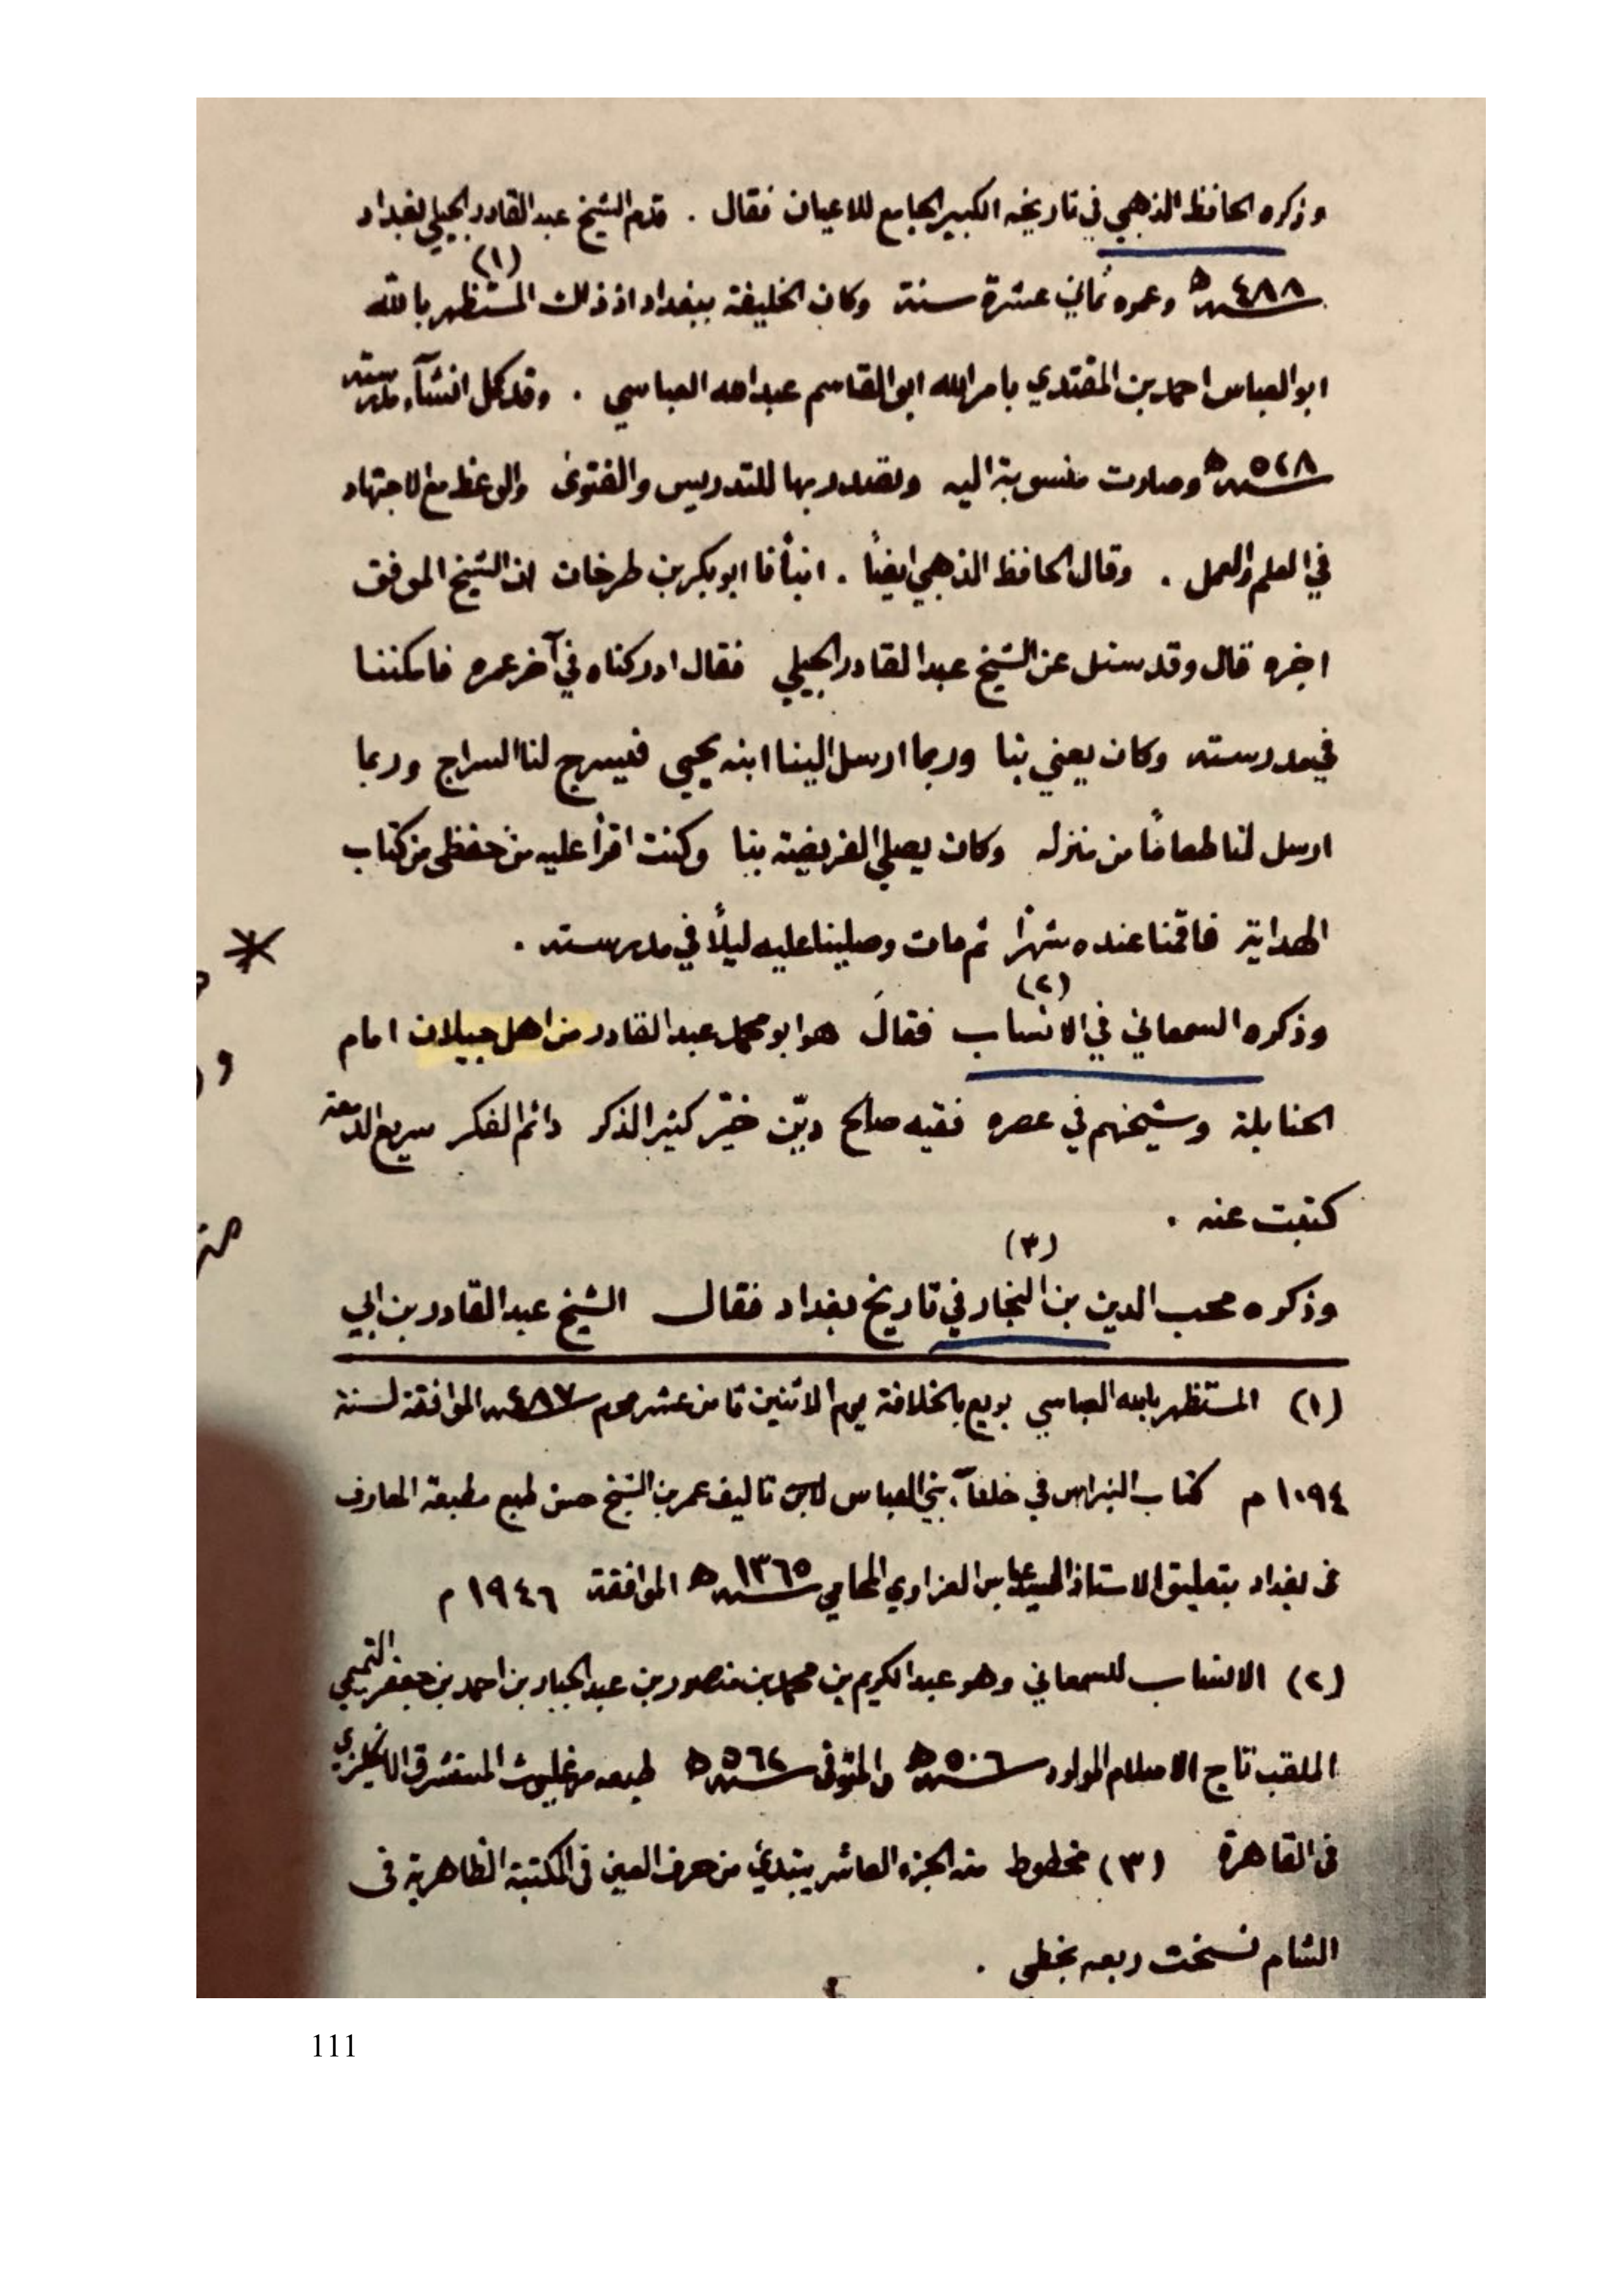 وذكره الحافظ الذهبي في تاريخه الكبير الجامع للاعيان فقال . قدم الشيخ عبدالقادر الجيلي بغداد
سنة ٤٨٨ هـ وعمره ثماني عشرة سنة وكان الخليفة ببغداد اذ ذاك المستظهر بالله (١)
ابو العباس احمد بن المقتدي بامر الله ابو القاسم عبدالله العباسي . وقد كمل انشآء مدرسته
سنة ٥٢٨ هـ وصارت منسوبة اليه وتصدر بها للتدريس والفتوى والوعظ مع الاجتهاد
في العلم والعمل . وقال الحافظ الذهبي ايضاً . انبأنا ابو بكر بن طرخان ان الشيخ الموفق
اخبره قال وقد سئل عن الشيخ عبدالقادر الجيلي فقال ادركناه في آخر عمره فاسكننا
في مدرسته وكان يعني بنا وربما ارسل الينا ابنه يحيى فيسرج لنا السراج وربما
ارسل لنا طعاماً من منزله وكان يصلي الفريضة بنا وكنت اقرأ عليه من حفظي من كتاب
الهداية فاقمنا عنده شهراً ثم مات وصلينا عليه ليلاً في مدرسته .
وذكره السمعاني في الانساب (٢) فقالَ هو ابو محمد عبدالقادر من اهل جيلان امام
الحنابلة وشيخهم في عصره فقيه صالح ديّن خيّر كثير الذكر دائم الفكر سريع الدمعة
كتبت عنه .
وذكره محب الدين بن النجار (٣) في تاريخ بغداد فقال الشيخ عبدالقادر بن ابي
(١) المستظهر بالله العباسي بويع بالخلافة يوم الاثنين ثامن عشر محرم سنة ٤٨٧ الموافقة لسنة
١٠٩٤ م كتاب النبراس في خلفآء بني العباس تاليف عمر بن الشيخ حسن طبع مطبعة المعارف
في بغداد بتعليق الاستاذ السيد عباس العزاوي المحامي سنة ١٣٦٥ هـ الموافقة ١٩٤٦ م
(٢) الانساب للسمعاني وهو عبدالكريم بن محمد بن منصور بن عبدالجبار بن احمد بن جعفر التميمي
الملقب تاج الاسلام المولود سنة ٥٠٦ هـ والمتوفى سنة ٥٦٢ هـ طبعه مرغليوث المستشرق الانكليزي
في القاهرة (٣) مخطوط منه الجزء العاشر يبتدئ من حرف العين في المكتبة الظاهرية في
الشام نسخت ربعه بخطي .
111